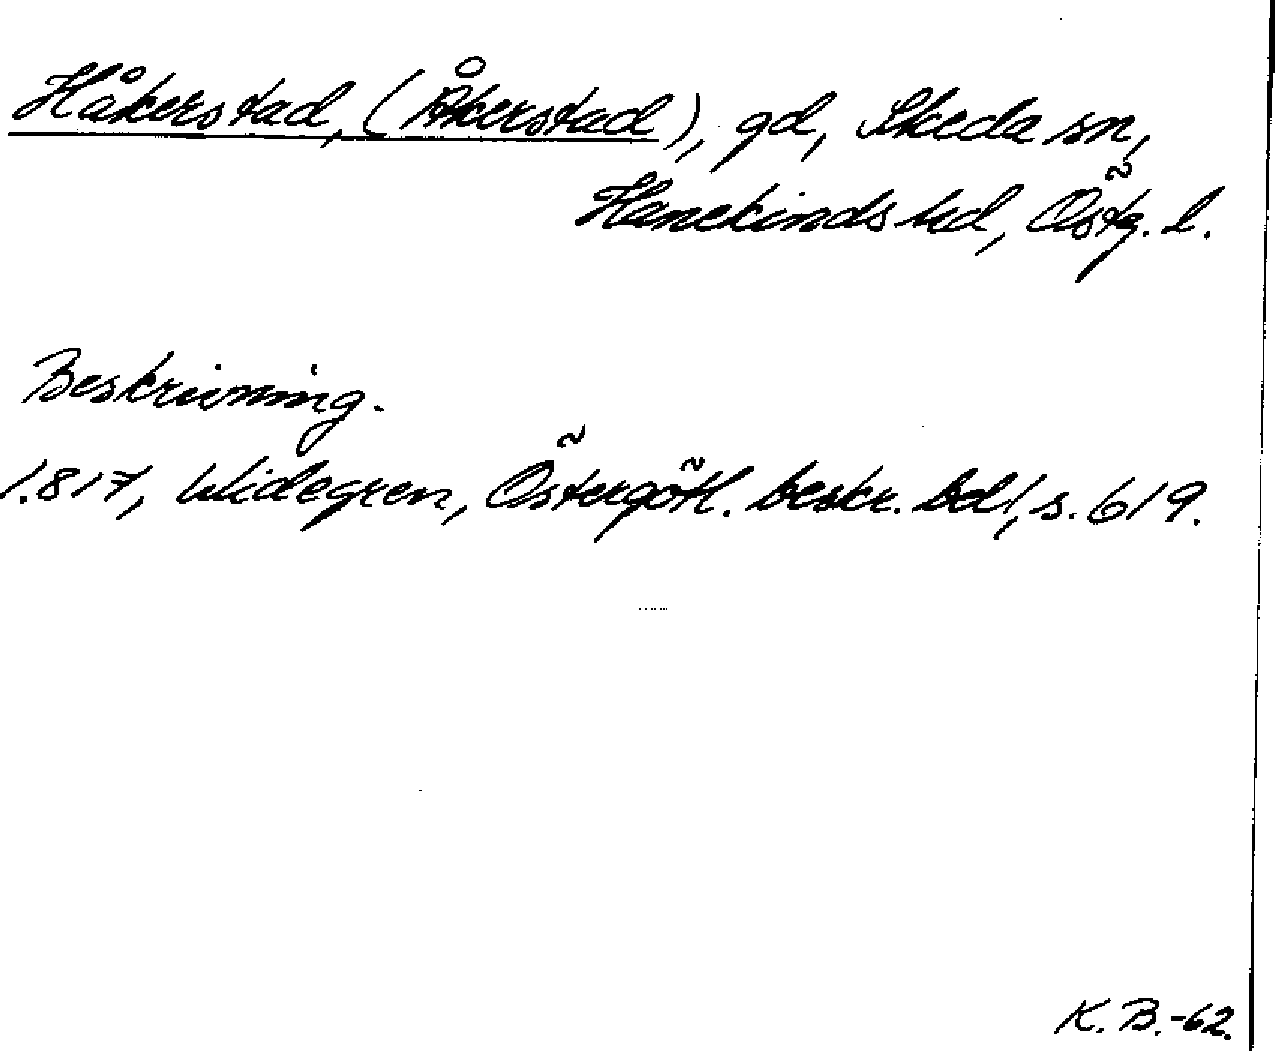 Håkerstad, (Åkerstad), gd, Skeda sn,
Hanekinds hd, Östg. l.
Beskrivning.
1.817, Widegren, Östergötl. beskr. bd 1, s. 619.
K. B.-62.